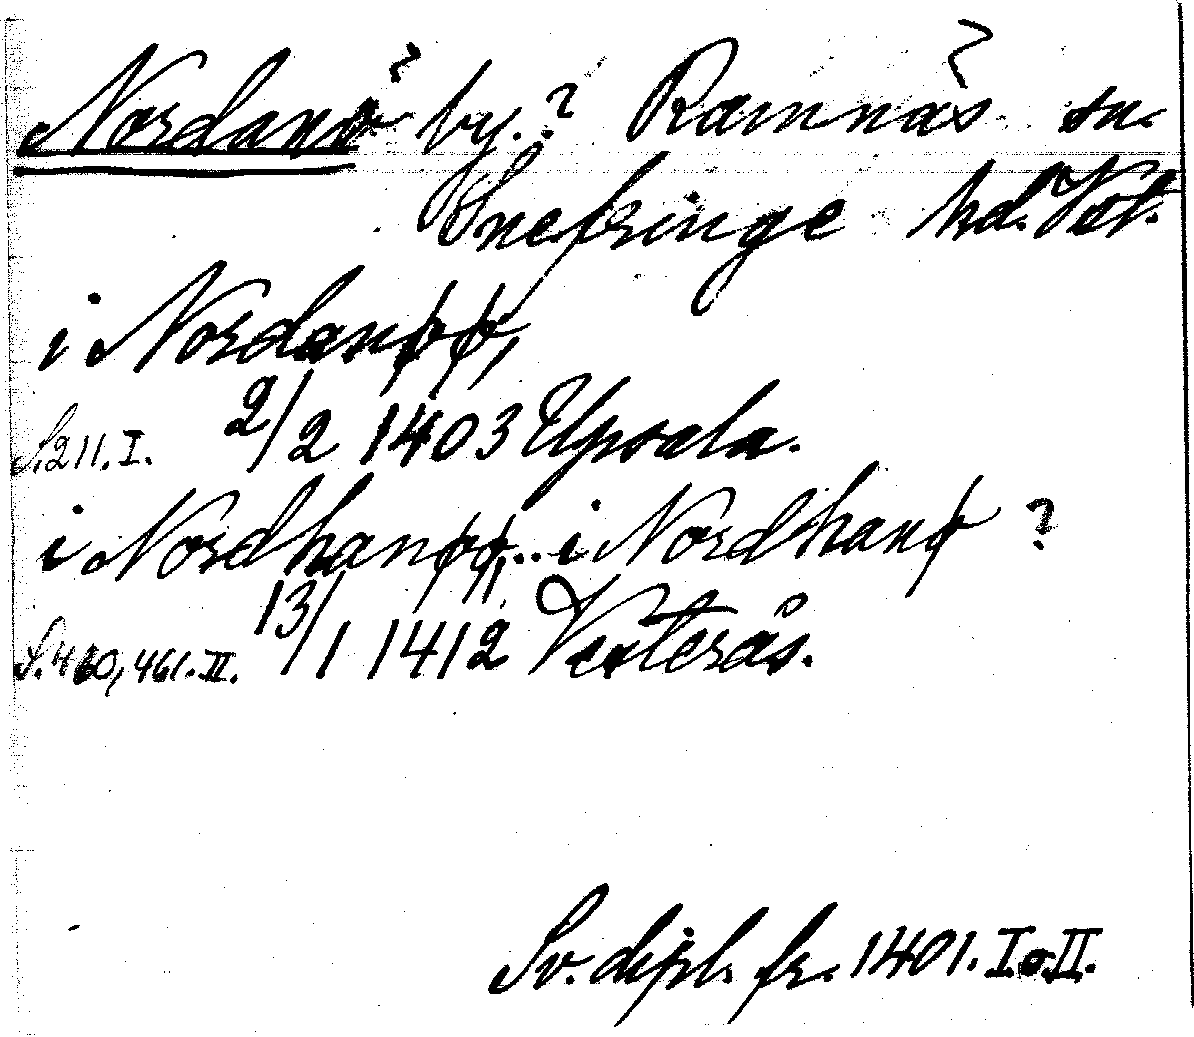 Nordanö by.? Ramnäs sn.
Snefringe hd. Vstl.
i Nordanøø,
S. 211. I. 2/2 1403 Upsala.
i Nordhanøø,.. i Nordhanø ?
S. 460, 461. II. 13/1 1412 Vesterås.
Sv. dipl. fr. 1401. I o. II.